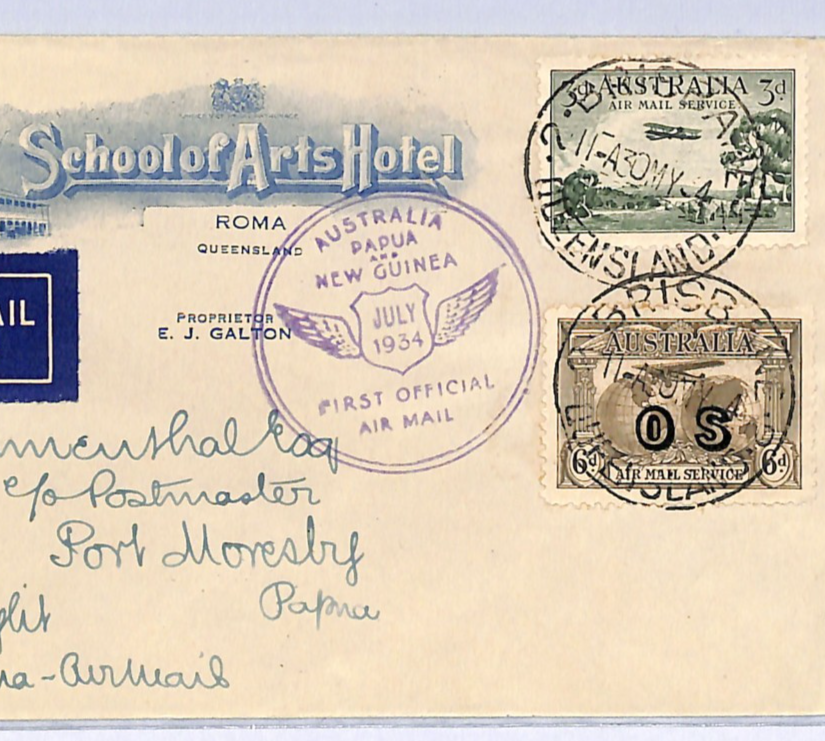 School of Arts Hotel
ROMA
QUEENSLAND
PROPRIETOR
E. J. GALTON
AIL
AUSTRALIA
PAPUA
AND
NEW GUINEA
JULY
1934
FIRST OFFICIAL
AIR MAIL
3d AUSTRALIA 3d
AIR MAIL SERVICE
11-A30MY34
QUEENSLAND
BRISBANE
AUSTRALIA
OS
6d AIR MAIL SERVICE 6d
QUEENSLAND
menthal Esq
c/o Postmaster
Port Moresby
Papua
ght
a-AirMail